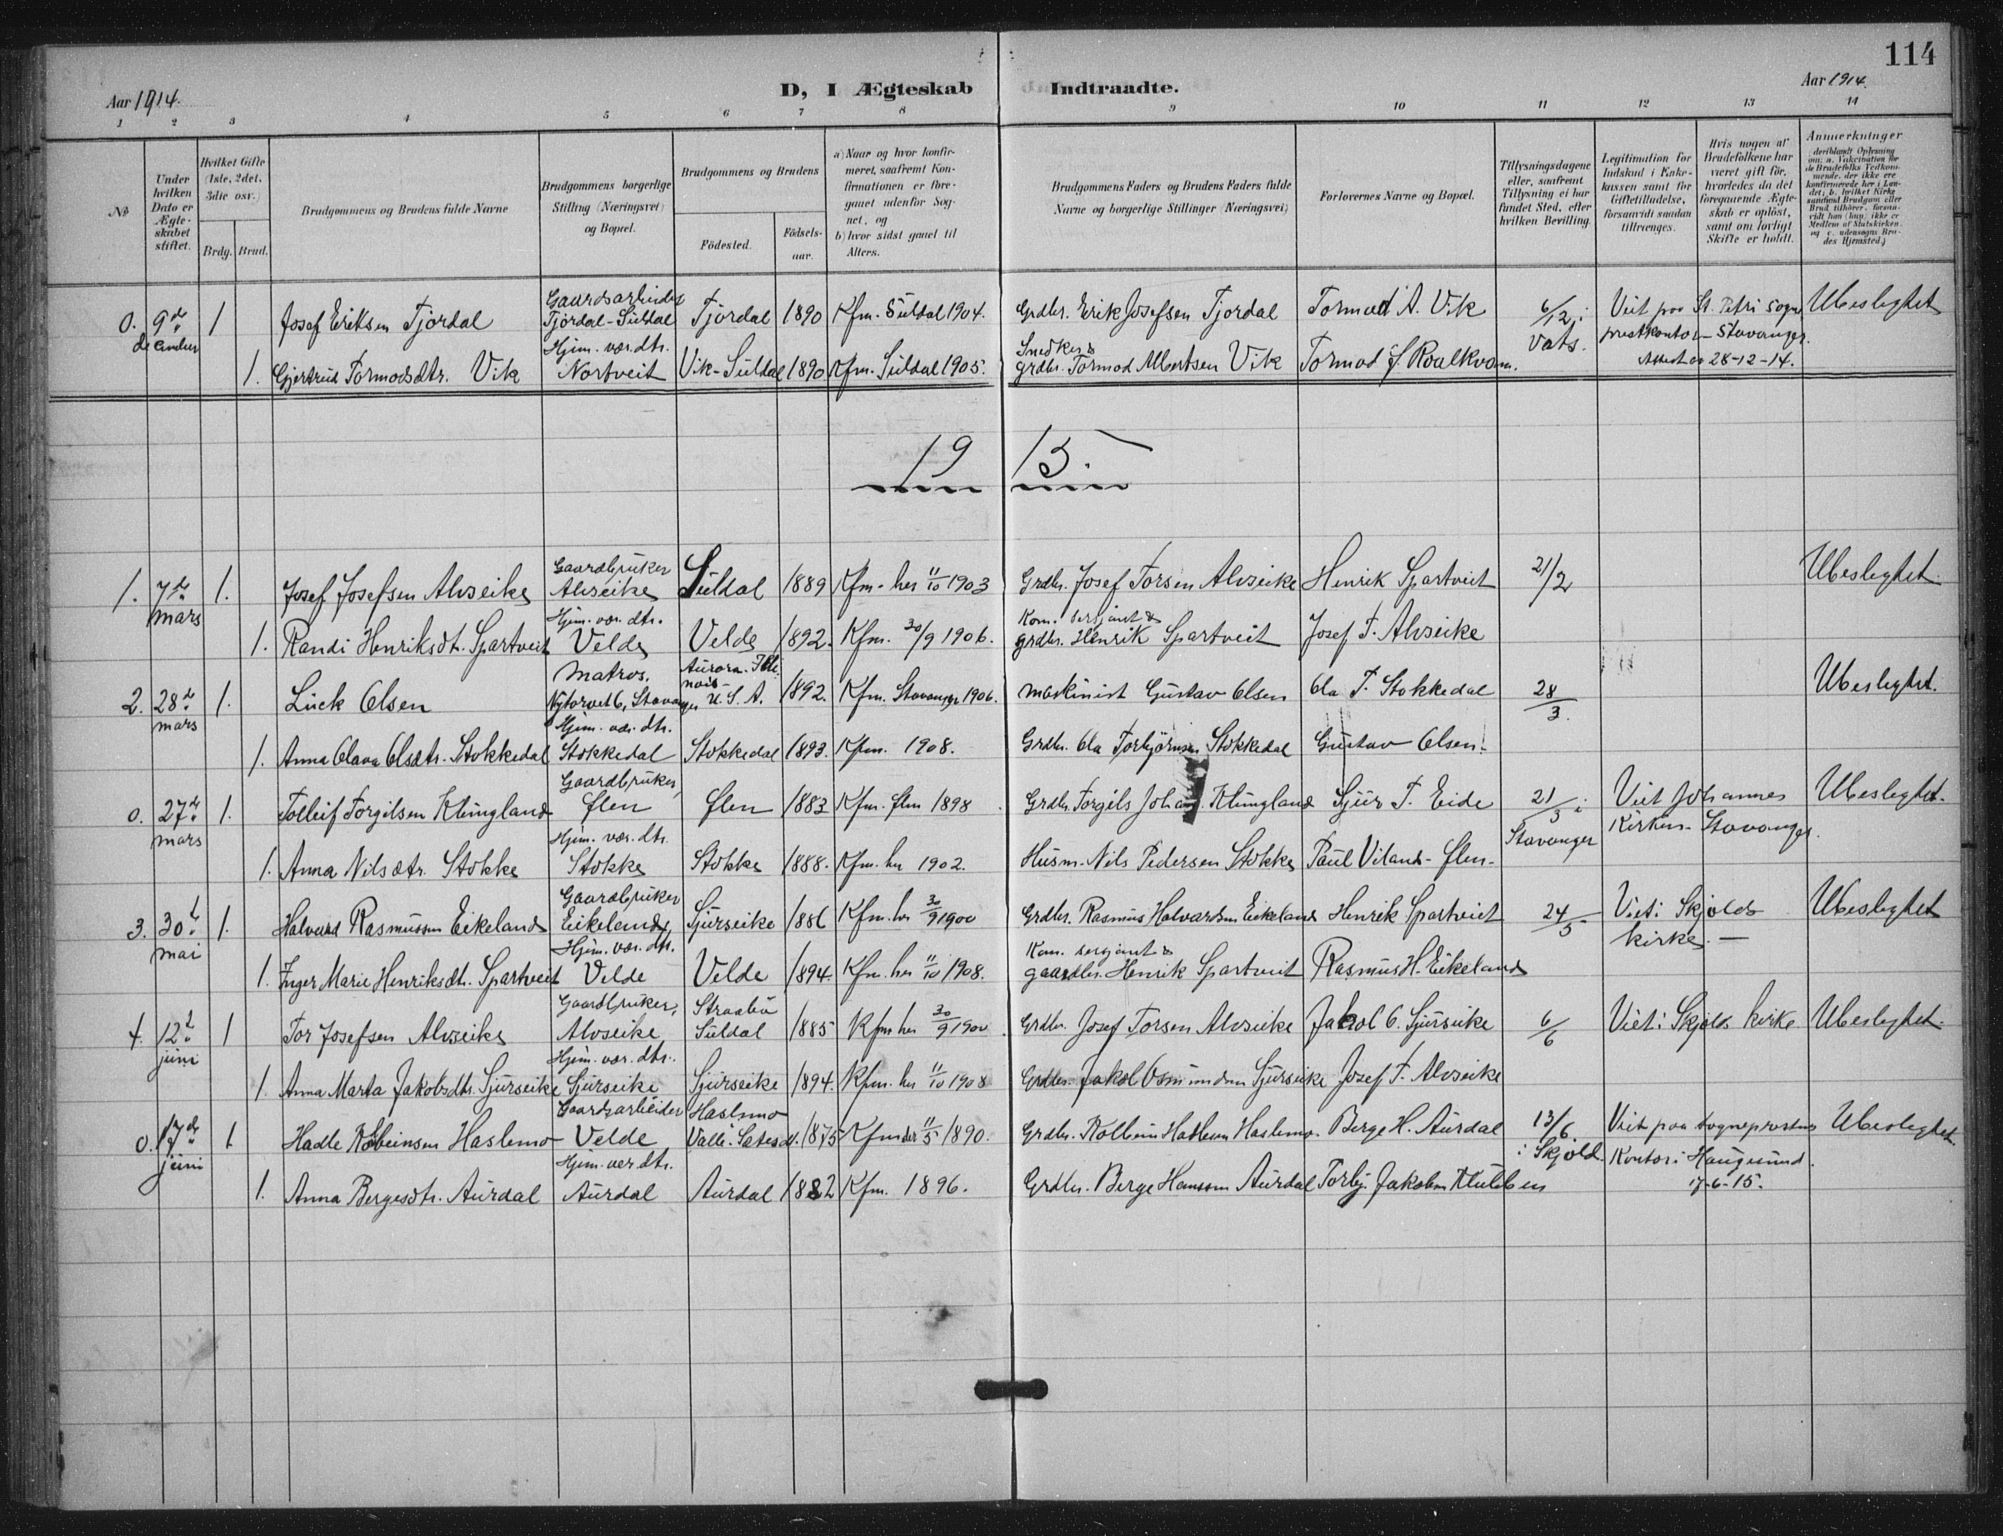 114
Aar 1914.
D, I Ægteskab Indtraadte.
Aar 1914.
1 2 3 4 5 6 7 8 9 10 11 12 13 14
No
Under hvilken Dato er Ægteskabet stiftet.
Hvilket Gifte (1ste, 2det, 3die osv.)
Brdg. Brud.
Brudgommens og Brudens fulde Navne
Brudgommens borgerlige Stilling (Næringsvei) og Bopæl.
Brudgommens og Brudens
Fødested.
Fødselsaar.
a) Naar og hvor konfirmeret, saafremt Konfirmationen er foregaaet udenfor Sognet, og
b) hvor sidst gaaet til Alters.
Brudgommens Faders og Brudens Faders fulde Navne og borgerlige Stillinger (Næringsvei)
Forlovernes Navne og Bopæl.
Tillysningsdagene eller, saafremt Tillysning ei har fundet Sted, efter hvilken Bevilling.
Legitimation for Indskud i Enkekassen samt for Giftetilladelse, forsaavidt saadan tiltrænges.
Hvis nogen af Brudefolkene har været gift før, hvorledes da det foregaaende Ægteskab er opløst, samt om lovligt Skifte er holdt.
Anmerkninger
(deriblandt Oplysning om: a. Vakcination for de Brudefolks Vedkommende, der ikke ere konfirmerede her i Landet; b. hvilket Kirkesamfund Brudgom eller Brud tilhører, forsaavidt han (hun) ikke er Medlem af Statskirken, og c. udensogns Brudes Hjemsted.)
0. 9de december 1 Josef Eriksen Tjordal Gaardsarbeider Tjordal-Suldal Tjordal 1890 Kfm. Suldal 1904. Grdbr. Erik Josefsen Tjordal Tormod A. Vik 6/12 i Vats. Viet paa St. Petri sogneprestkontor - Stavanger. Attest av 28-12-14. Ubeslegtet
1. Gjertrud Tormodsdtr. Vik Hjem. vær. dtr. Nortveit Vik-Suldal 1890 Kfm. Suldal 1905. Snedker & grdbr. Tormod Albertsen Vik Tormod J. Roalkvam.
1915.
1. 7de mars 1. Josef Josefsen Alvseike Gaardbruker Alvseike Suldal 1889 Kfm. her 11/10 1903 Grdbr. Josef Torsen Alvseike Henrik Spartveit 21/2 Ubeslegtet
1. Randi Henriksdtr. Spartveit Hjem. vær. dtr. Velde Velde 1892. Kfm. 30/9 1906. Kom. sersjant & grdbr. Henrik Spartveit Josef T. Alvseike
2. 28de mars 1. Luck Olsen Matros. Nytorvet 6, Stavanger Aurora. Illinois - U.S.A. 1892. Kfm. Stavanger 1906. Maskinist Gustav Olsen Ola T. Stokkedal 28/3. Ubeslegtet.
1. Anna Olava Olsdtr. Stokkedal Hjem. vær. dtr. Stokkedal Stokkedal 1893. Kfm. 1908. Grdbr. Ola Torbjørnsen Stokkedal Gustav Olsen.
0. 27de mars 1. Tolleif Torgilsen Klungland Gaardbruker, Ølen Ølen 1883 Kfm. Ølen 1898 Grdbr. Torgils Johan Klungland Sjur T. Eide 21/3 i Stavanger Viet Johannes Kirken - Stavanger. Ubeslegtet.
1. Anna Nilsdtr. Stokke Hjem. vær. dtr. Stokke Stokke 1888. Kfm. her 1902. Husm. Nils Pedersen Stokke Paul Viland - Ølen -
3. 30te mai 1. Halvard Rasmussen Eikeland Gaardbruker Eikeland Sjurseike 1886 Kfm. her 30/9 1900 Grdbr. Rasmus Halvardsen Eikeland Henrik Spartveit 24/5 Viet i Skjold kirke. - Ubeslegtet
1. Inger Marie Henriksdtr. Spartveit Hjem. vær. dtr. Velde Velde 1894. Kfm. her 11/10 1908. Kom. sersjant & gaardbr. Henrik Spartveit Rasmus H. Eikeland
4. 12te juni 1 Tor Josefsen Alvseike Gaardbruker, Alvseike Straabø Suldal 1885 Kfm. her 30/9 1900 Grdbr. Josef Torsen Alvseike Jakob O. Sjurseike 6/6 Viet i Skjold kirke Ubeslegtet.
1. Anna Marta Jakobsdtr. Sjurseike Hjem. vær. dtr. Sjurseike Sjurseike 1894. Kfm. her 11/10 1908 Grdbr. Jakob Osmundsen Sjurseike Josef T. Alvseike
0. 17de juni 1 Hadle Kolbeinsen Haslemo Gaardsarbeider Velde Haslemo Valle. Sætesd. 1875 Kfm. der 11/5 1890. Grdbr. Kolbein Hadleson Haslemo. Berge H. Aurdal 13/6 i Skjold. Viet paa sogneprestens Kontor i Haugesund. 17-6-15. Ubeslegtet
1. Anna Bergesdtr. Aurdal Hjem. vær. dtr. Aurdal Aurdal 1882 Kfm. 1896. Grdbr. Berge Hansson Aurdal Torbj. Jakobsen